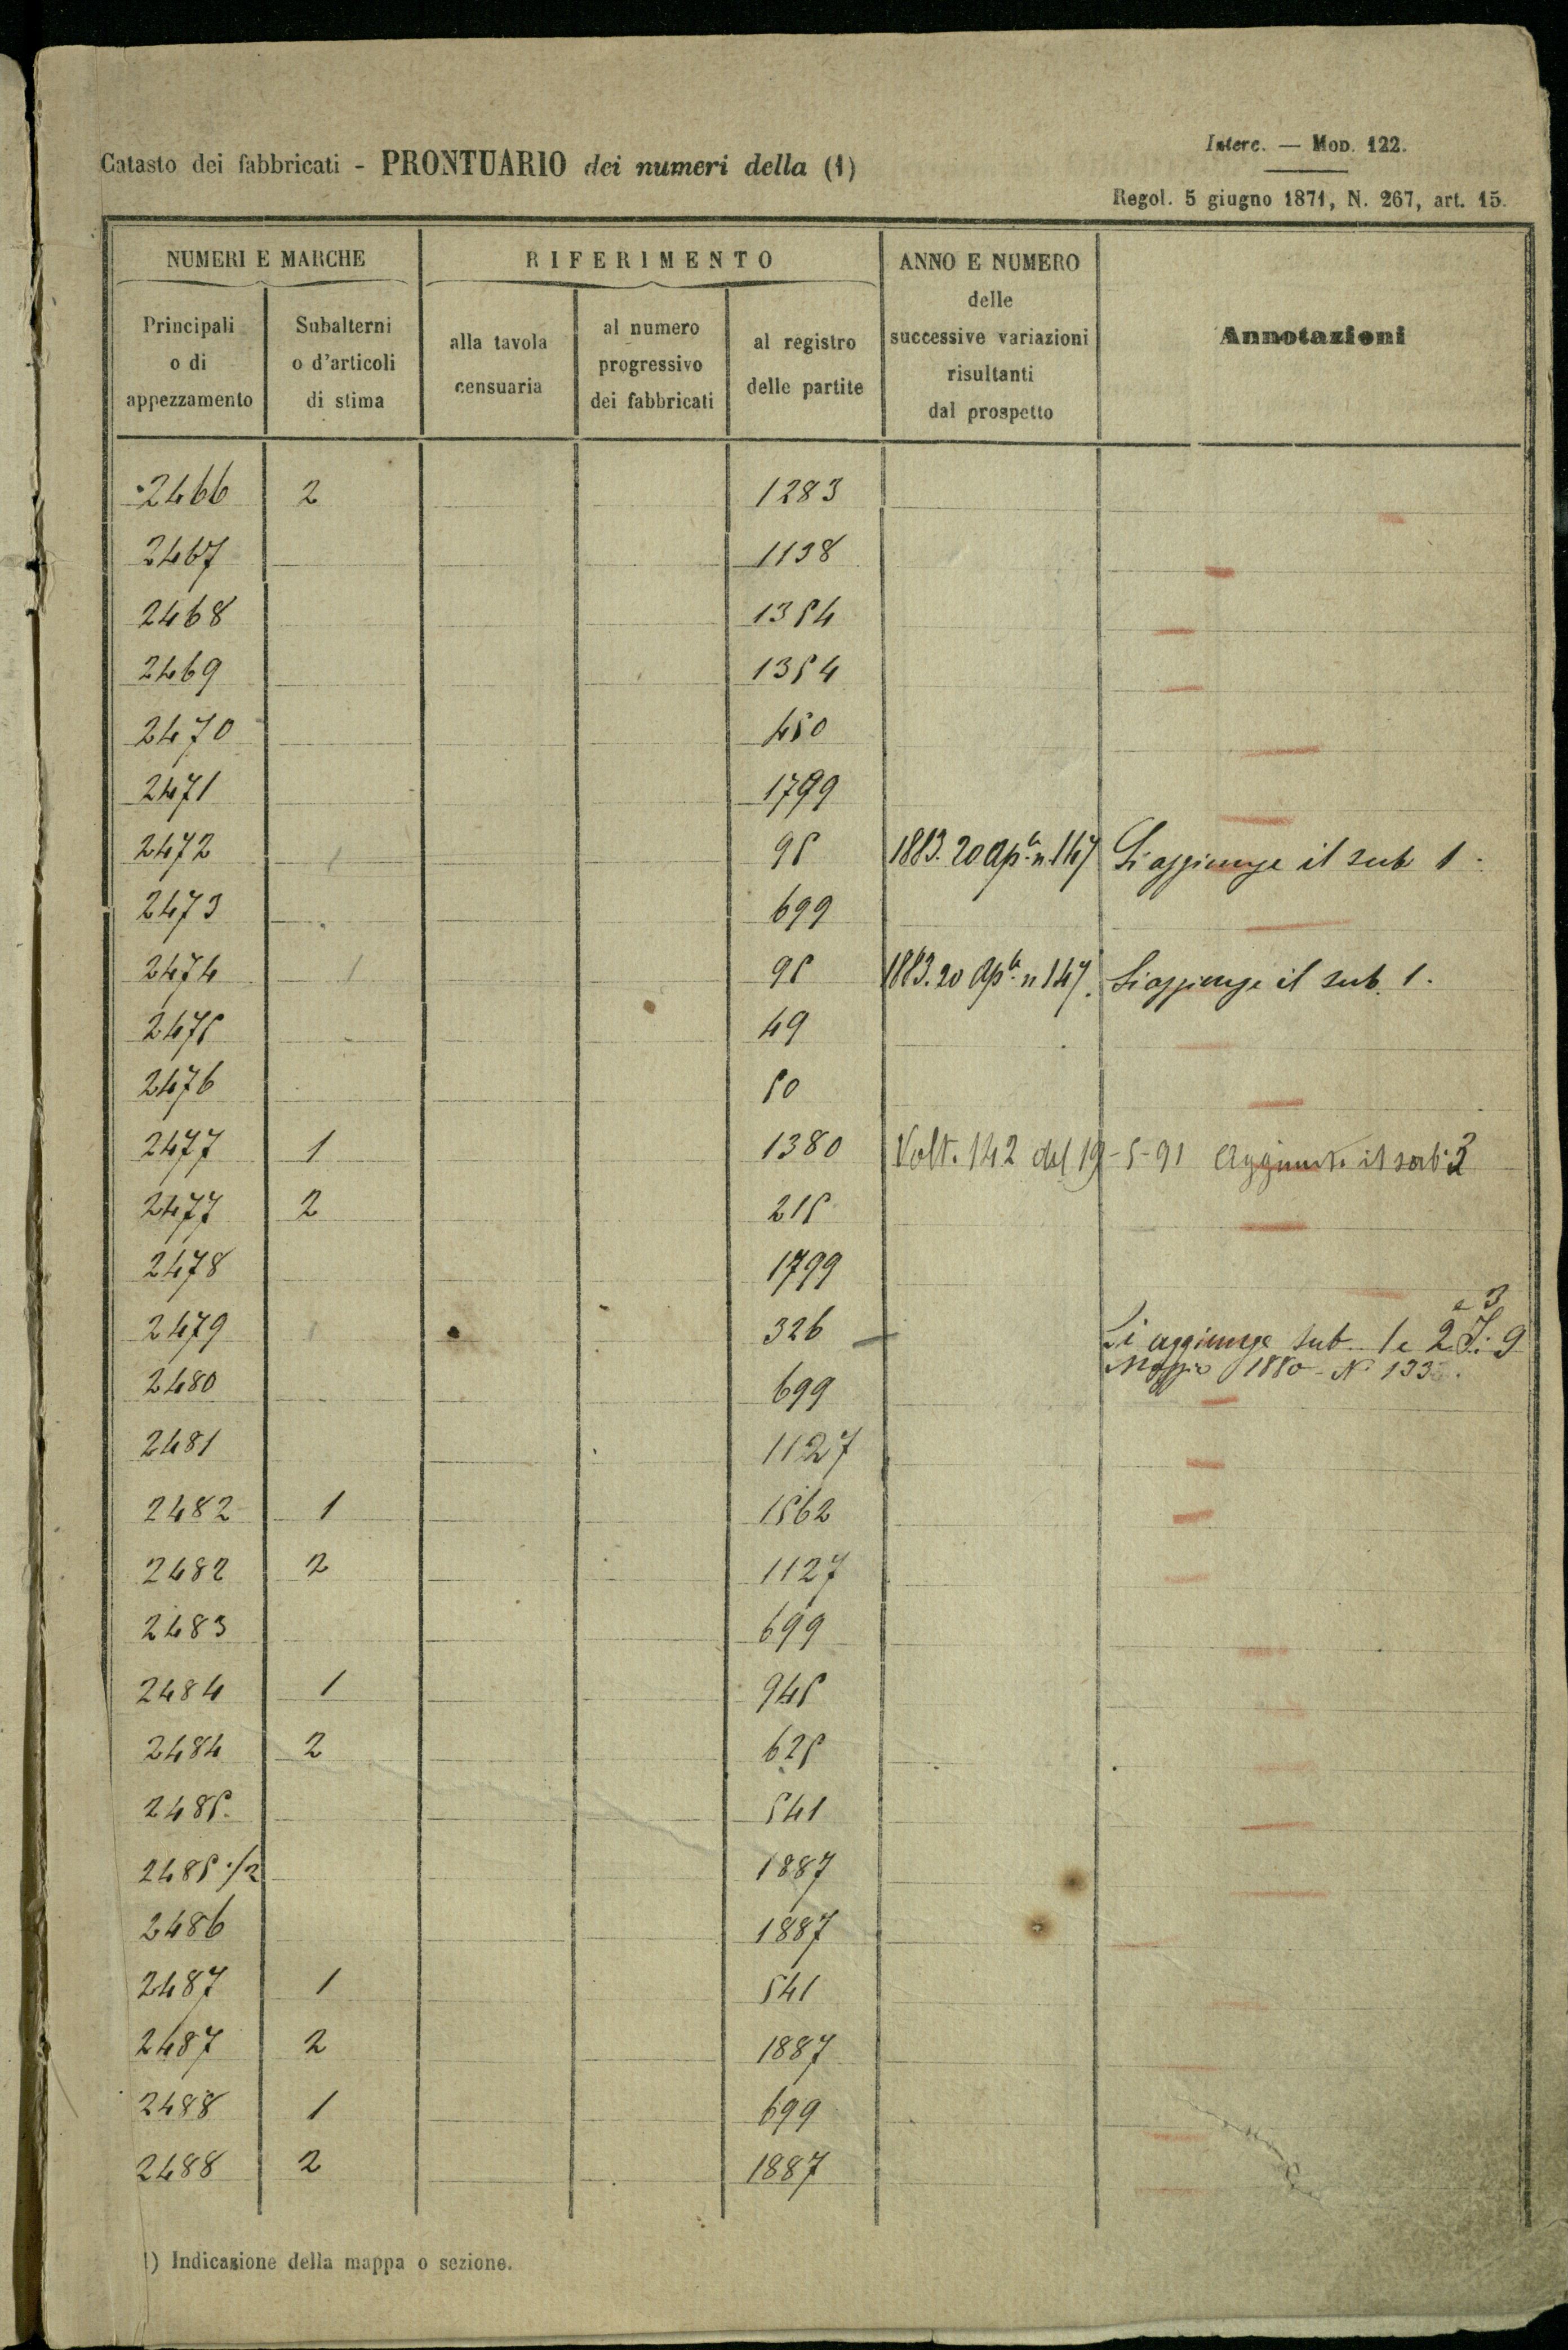 Interc. — Mod. 122.
Catasto dei fabbricati - PRONTUARIO dei numeri della (1)
Regol. 5 giugno 1871, N. 267, art. 15.
NUMERI E MARCHE RIFERIMENTO ANNO E NUMERO delle successive variazioni risultanti dal prospetto Annotazioni
Principali o di appezzamento Subalterni o d'articoli di stima alla tavola censuaria al numero progressivo dei fabbricati al registro delle partite
2466 2 1283
2467 1138
2468 1354
2469 1354
2470 450
2471 1799
2472 95 1883. 20 Aple n 147 Si aggiunge il sub 1.
2473 699
2474 1 95 1883. 20 Aple n 147. Si aggiunge il sub. 1.
2475 49
2476 50
2477 1 1380 Volt. 142 del 19-5-91 Aggiunto il sub. 3
2477 2 215
2478 1799
e 3
2479 326 Si aggiunge sub. 1 e 2 9
2480 699 Maggio 1880 - N. 133
2481 1127
2482 1 1562
2482 2 1127
2483 699
2484 1 945
2484 2 625
2485. 541
2485 1/2 1887
2486 1887
2487 1 541
2487 2 1887
2488 1 699
2488 2 1887
1) Indicazione della mappa o sezione.